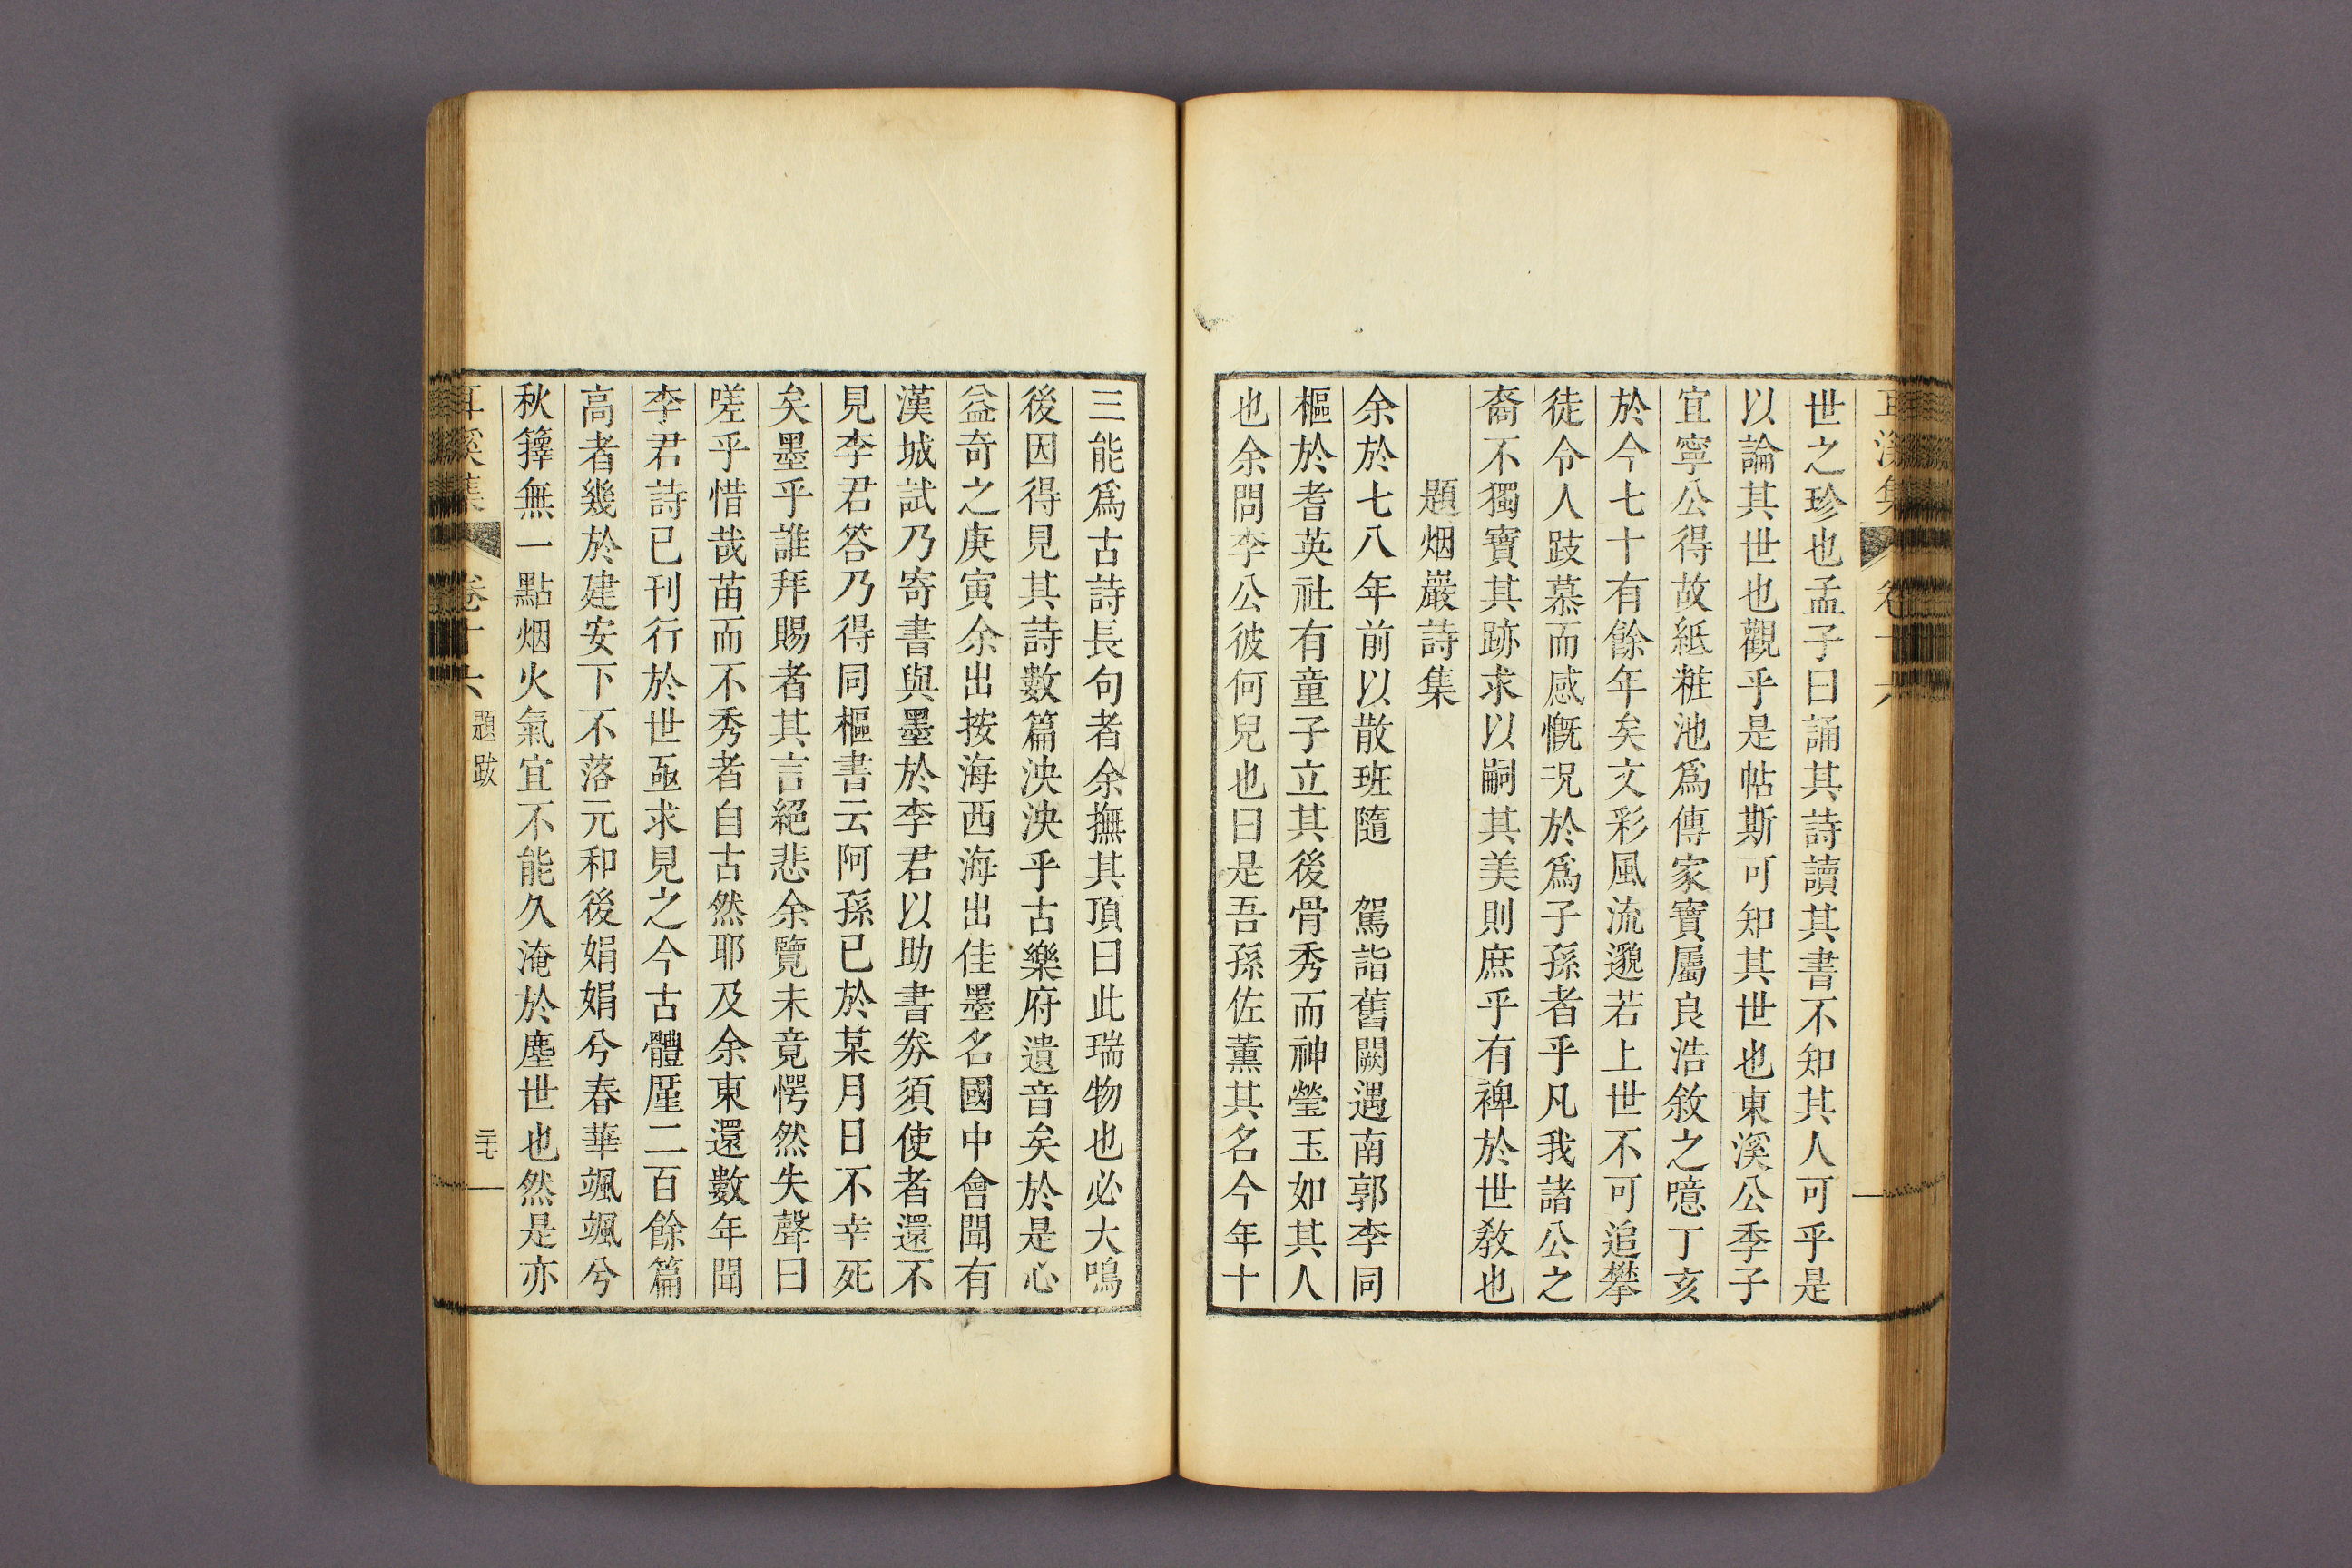 世之珍也孟子曰誦其詩讀其書不知其人可乎是
以論其世也觀乎是帖斯可知其世也東溪公季子
宜寧公得故紙粧池爲傳家寶屬良浩敘之噫丁亥
於今七十有餘年矣文彩風流邈若上世不可追攀
徒令人跂慕而感慨况於爲子孫者乎凡我諸公之
裔不獨寶其跡求以嗣其美則庶乎有裨於世敎也
題烟巖詩集
余於七八年前以散班隨 駕詣舊闕遇南郭李同
樞於耆英社有童子立其後骨秀而神瑩玉如其人
也余問李公彼何兒也曰是吾孫佐薰其名今年十
三能爲古詩長句者余撫其頂曰此瑞物也必大鳴
後因得見其詩數篇泱泱乎古樂府遺音矣於是心
益奇之庚寅余出按海西海出佳墨名國中會聞有
漢城試乃寄書與墨於李君以助書劵須使者還不
見李君答乃得同樞書云阿孫已於某月日不幸死
矣墨乎誰拜賜者其言絕悲余覽未竟愕然失聲曰
嗟乎惜哉苗而不秀者自古然耶及余東還數年聞
李君詩已刊行於世亟求見之今古體厪二百餘篇
高者幾於建安下不落元和後娟娟兮春華颯颯兮
秋籜無一點烟火氣宜不能久淹於塵世也然是亦
耳溪集 卷十六 題跋 三十七